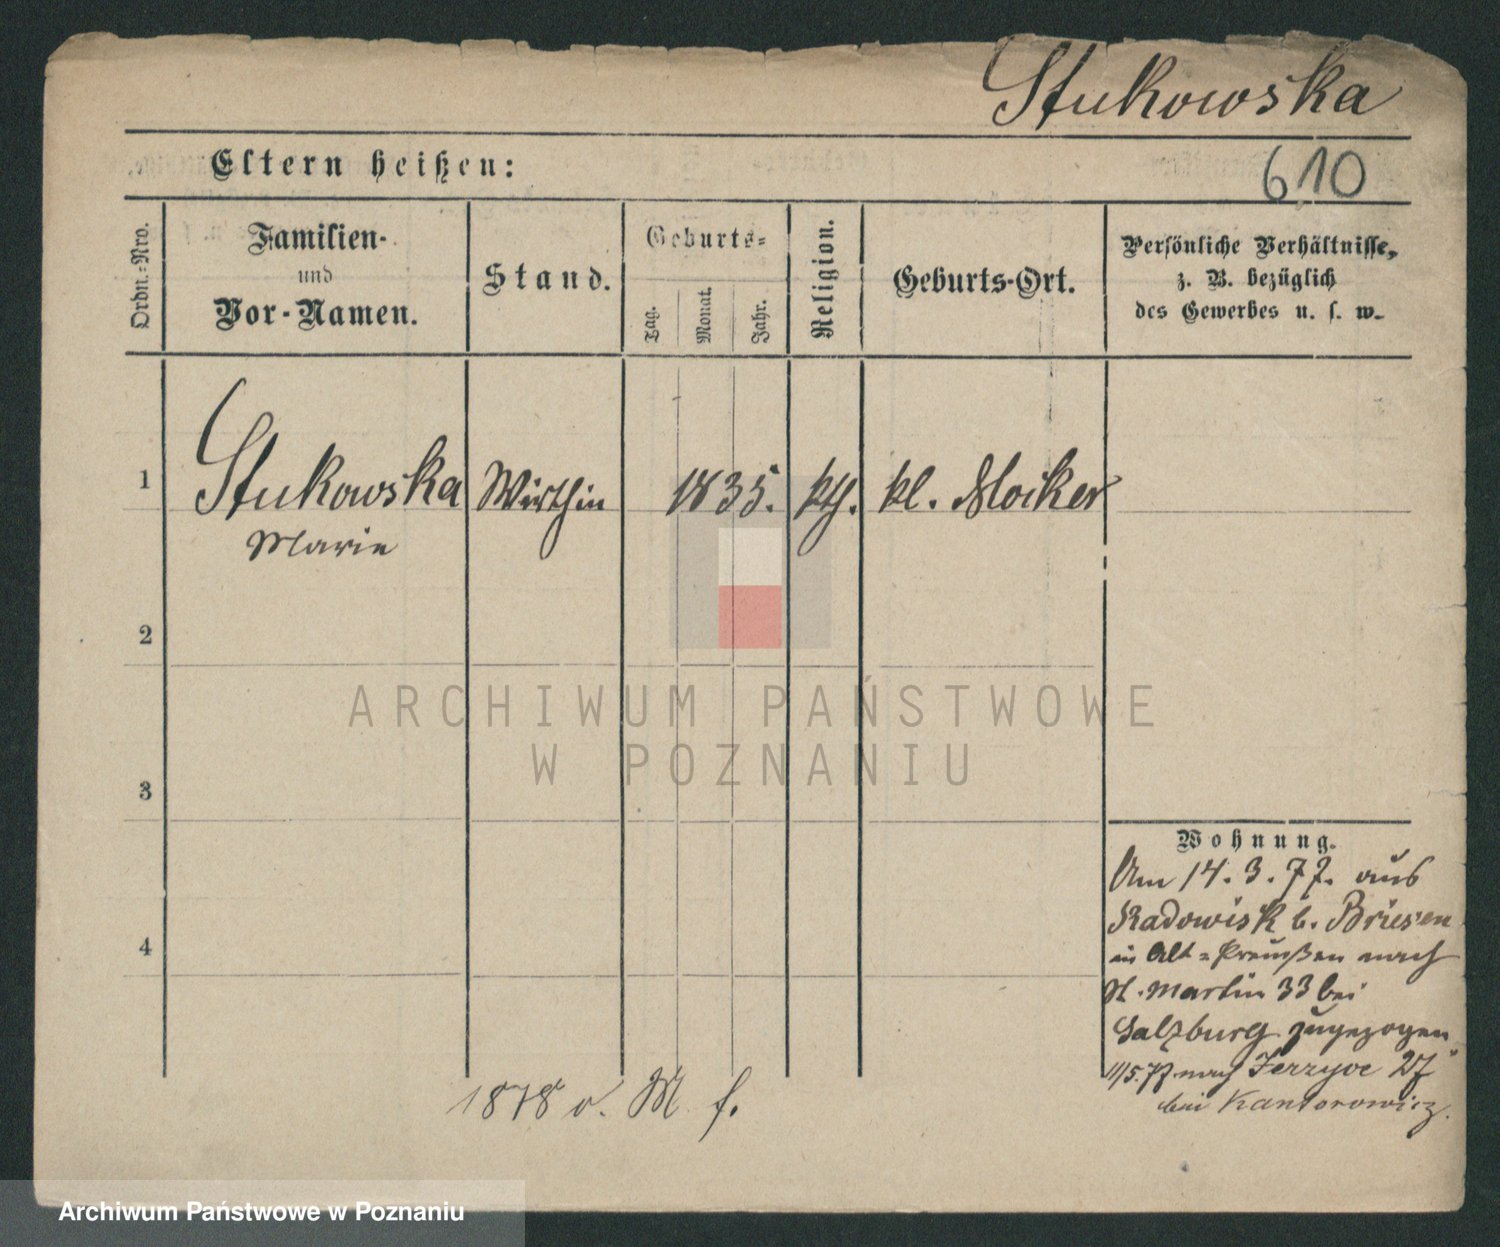 Stukowska
Eltern heißen:
610
Ordn.-Nro.
Familien-
und
Vor-Namen.
Stand.
Geburts-
Tag.
Monat.
Jahr.
Religion.
Geburts-Ort.
Persönliche Verhältnisse,
z. B. bezüglich
des Gewerbes u. s. w.
1
Stukowska
Marie
Wirthin
1835.
kth.
kl. Mocker
2
3
4
Wohnung.
Am 14. 3. 77. aus
Radowisk b. Briesen
in Alt-Preußen nach
St. Martin 33 bei
Salzburg zugezogen
11/5. 77 nach Jerzyce 27
bei Kantorowicz.
1878 v. M. f.
ARCHIWUM PAŃSTWOWE
W POZNANIU
Archiwum Państwowe w Poznaniu